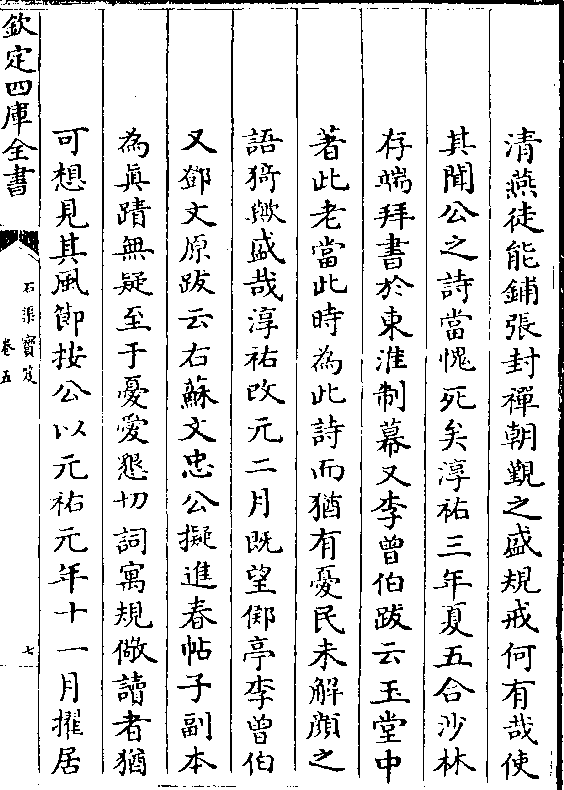 清燕徒能鋪張封禪朝覲之盛規戒何有哉使
其聞公之詩當愧死矣淳祐三年夏五合沙林
存端拜書於東淮制幕又李曾伯跋云玉堂中
著此老當此時為此詩而猶有憂民未解顔之
語猗歟盛哉淳祐改元二月既望鄮亭李曾伯
又鄧文原跋云右蘇文忠公擬進春帖子副本
為眞蹟無疑至于憂愛懇切詞寓規儆讀者猶
可想見其風節按公以元祐元年十一月擢居
欽定四庫全書
石渠寶笈
卷五
七